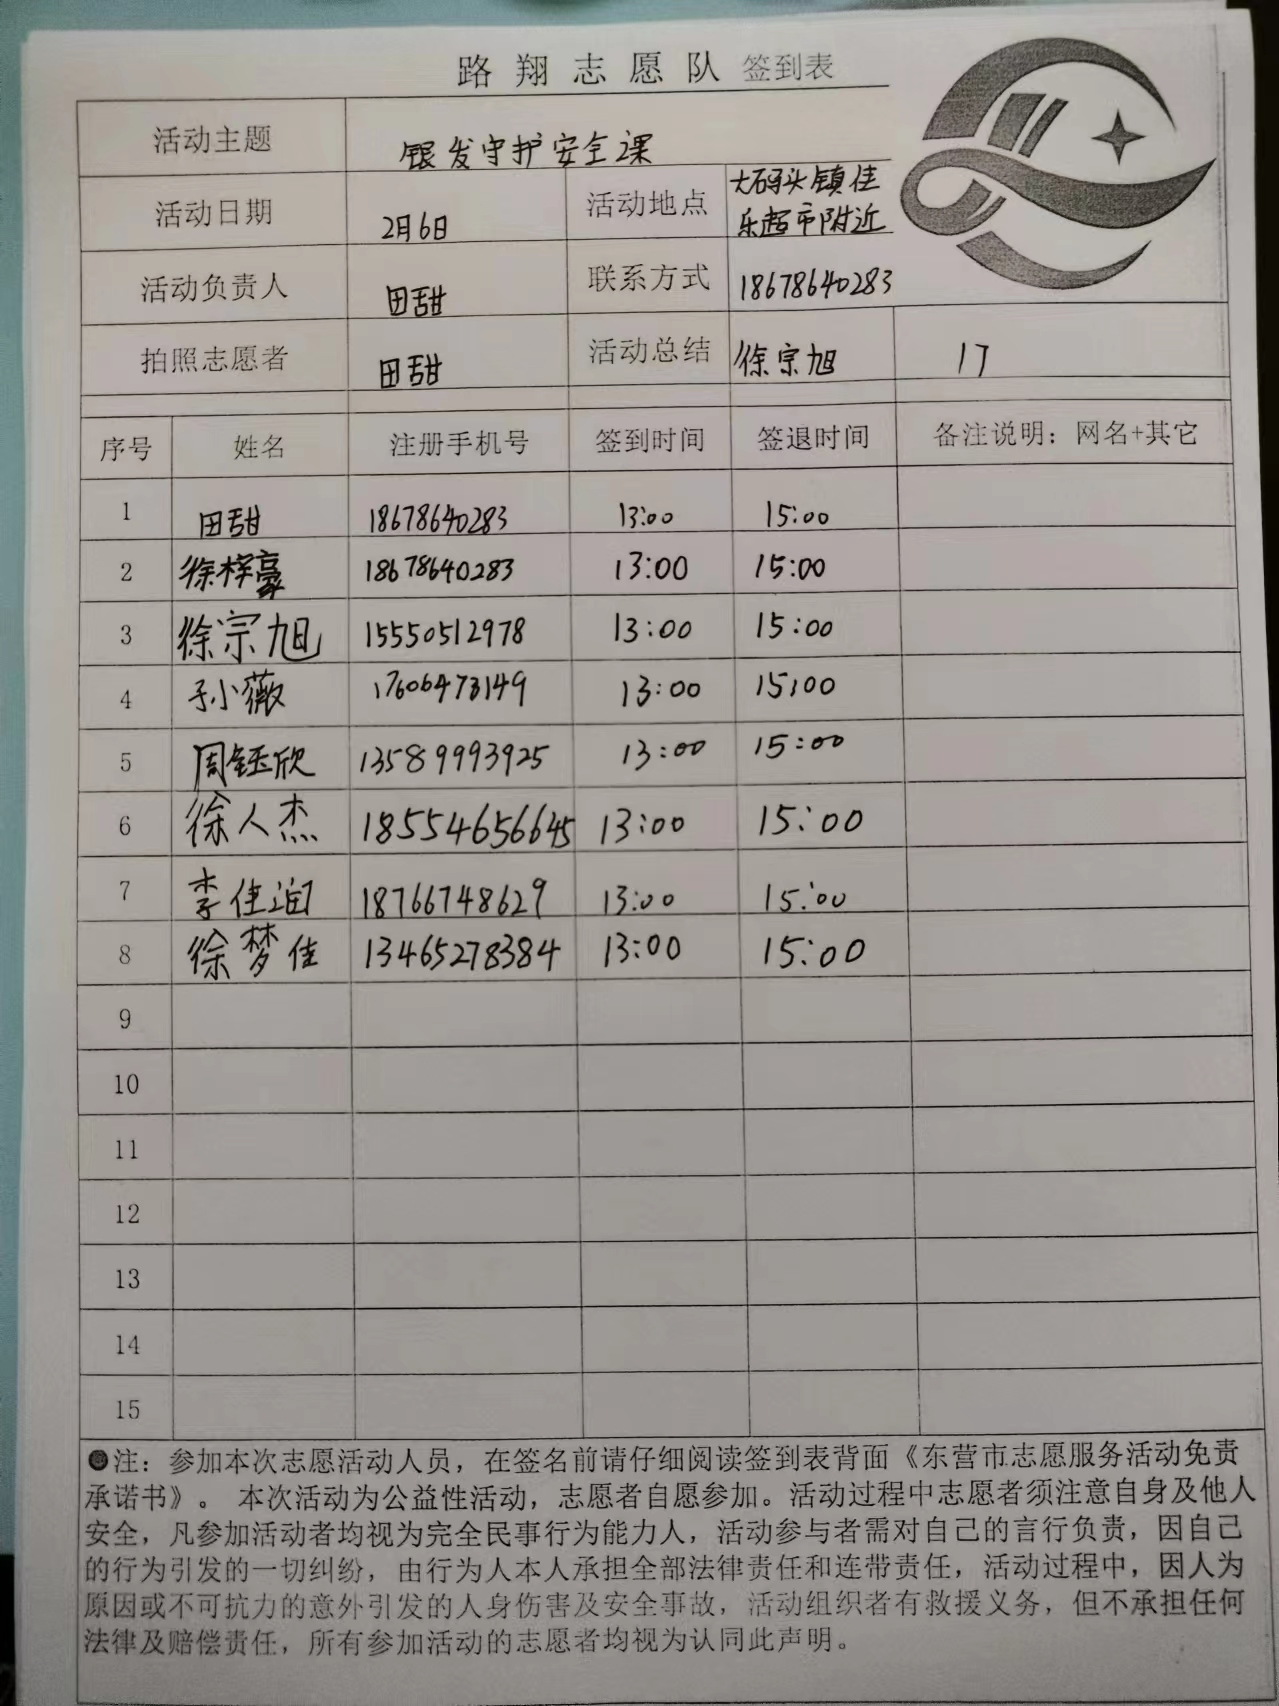 路翔志愿队 签到表
活动主题 银发守护安全课
活动日期 2月6日 活动地点 大码头镇佳乐超市附近
活动负责人 田甜 联系方式 18678640283
拍照志愿者 田甜 活动总结 徐宗旭 17
序号 姓名 注册手机号 签到时间 签退时间 备注说明：网名+其它
1 田甜 18678640283 13:00 15:00
2 徐梓豪 18678640283 13:00 15:00
3 徐宗旭 15550512978 13:00 15:00
4 孙小薇 17606473149 13:00 15:00
5 周钰欣 13589993925 13:00 15:00
6 徐人杰 18554656645 13:00 15:00
7 李佳润 18766748629 13:00 15:00
8 徐梦佳 13465278384 13:00 15:00
9
10
11
12
13
14
15
●注：参加本次志愿活动人员，在签名前请仔细阅读签到表背面《东营市志愿服务活动免责
承诺书》。 本次活动为公益性活动，志愿者自愿参加。活动过程中志愿者须注意自身及他人
安全，凡参加活动者均视为完全民事行为能力人，活动参与者需对自己的言行负责，因自己
的行为引发的一切纠纷，由行为人本人承担全部法律责任和连带责任，活动过程中，因人为
原因或不可抗力的意外引发的人身伤害及安全事故，活动组织者有救援义务，但不承担任何
法律及赔偿责任，所有参加活动的志愿者均视为认同此声明。